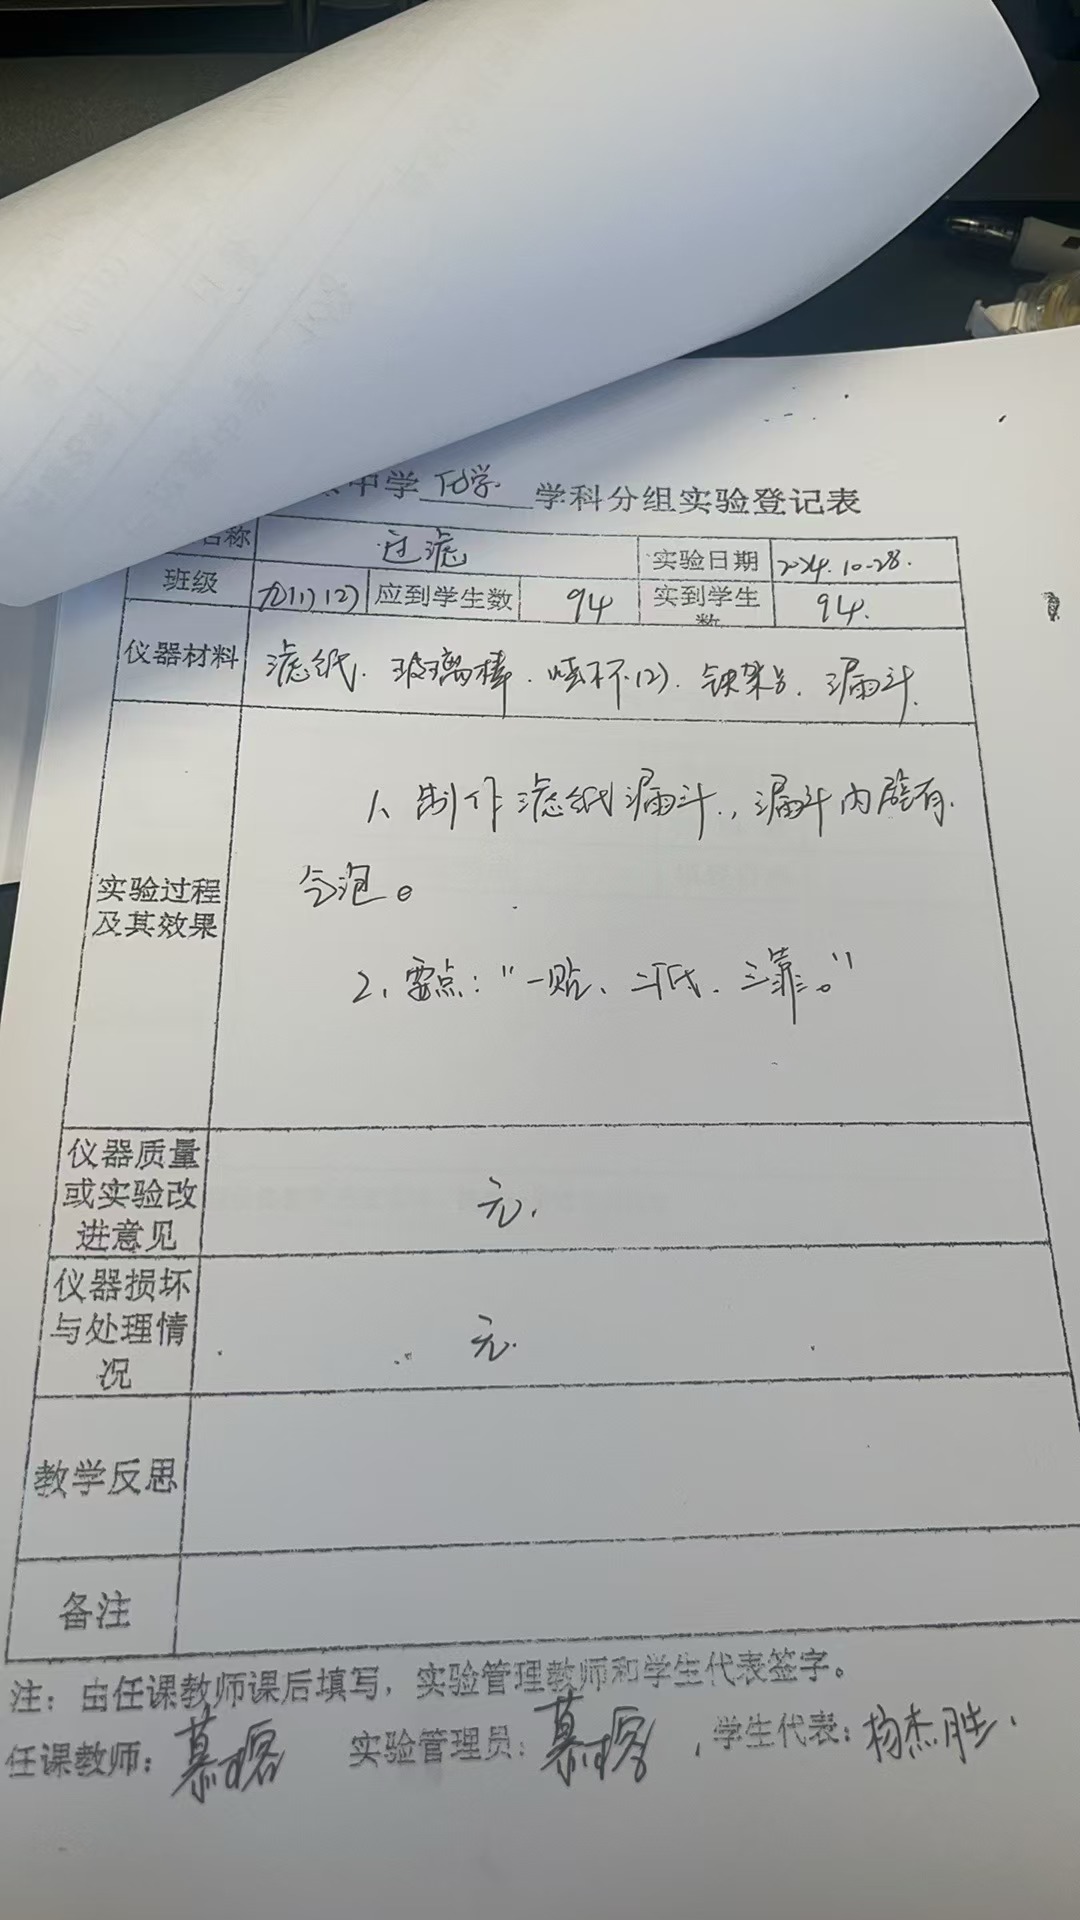 中学 化学 学科分组实验登记表
名称 过滤 实验日期 2024.10.28.
班级 九(1)(2) 应到学生数 94 实到学生数 94.
仪器材料 滤纸. 玻璃棒. 烧杯(2). 铁架台. 漏斗.
实验过程及其效果
1、制作滤纸漏斗., 漏斗内壁有.
气泡。
2、要点:"一贴、二低、三靠。"
仪器质量
或实验改
进意见
无.
仪器损坏
与处理情
况
无.
教学反思
备注
注: 由任课教师课后填写, 实验管理教师和学生代表签字。
任课教师: 实验管理员: 学生代表: 杨杰胜.